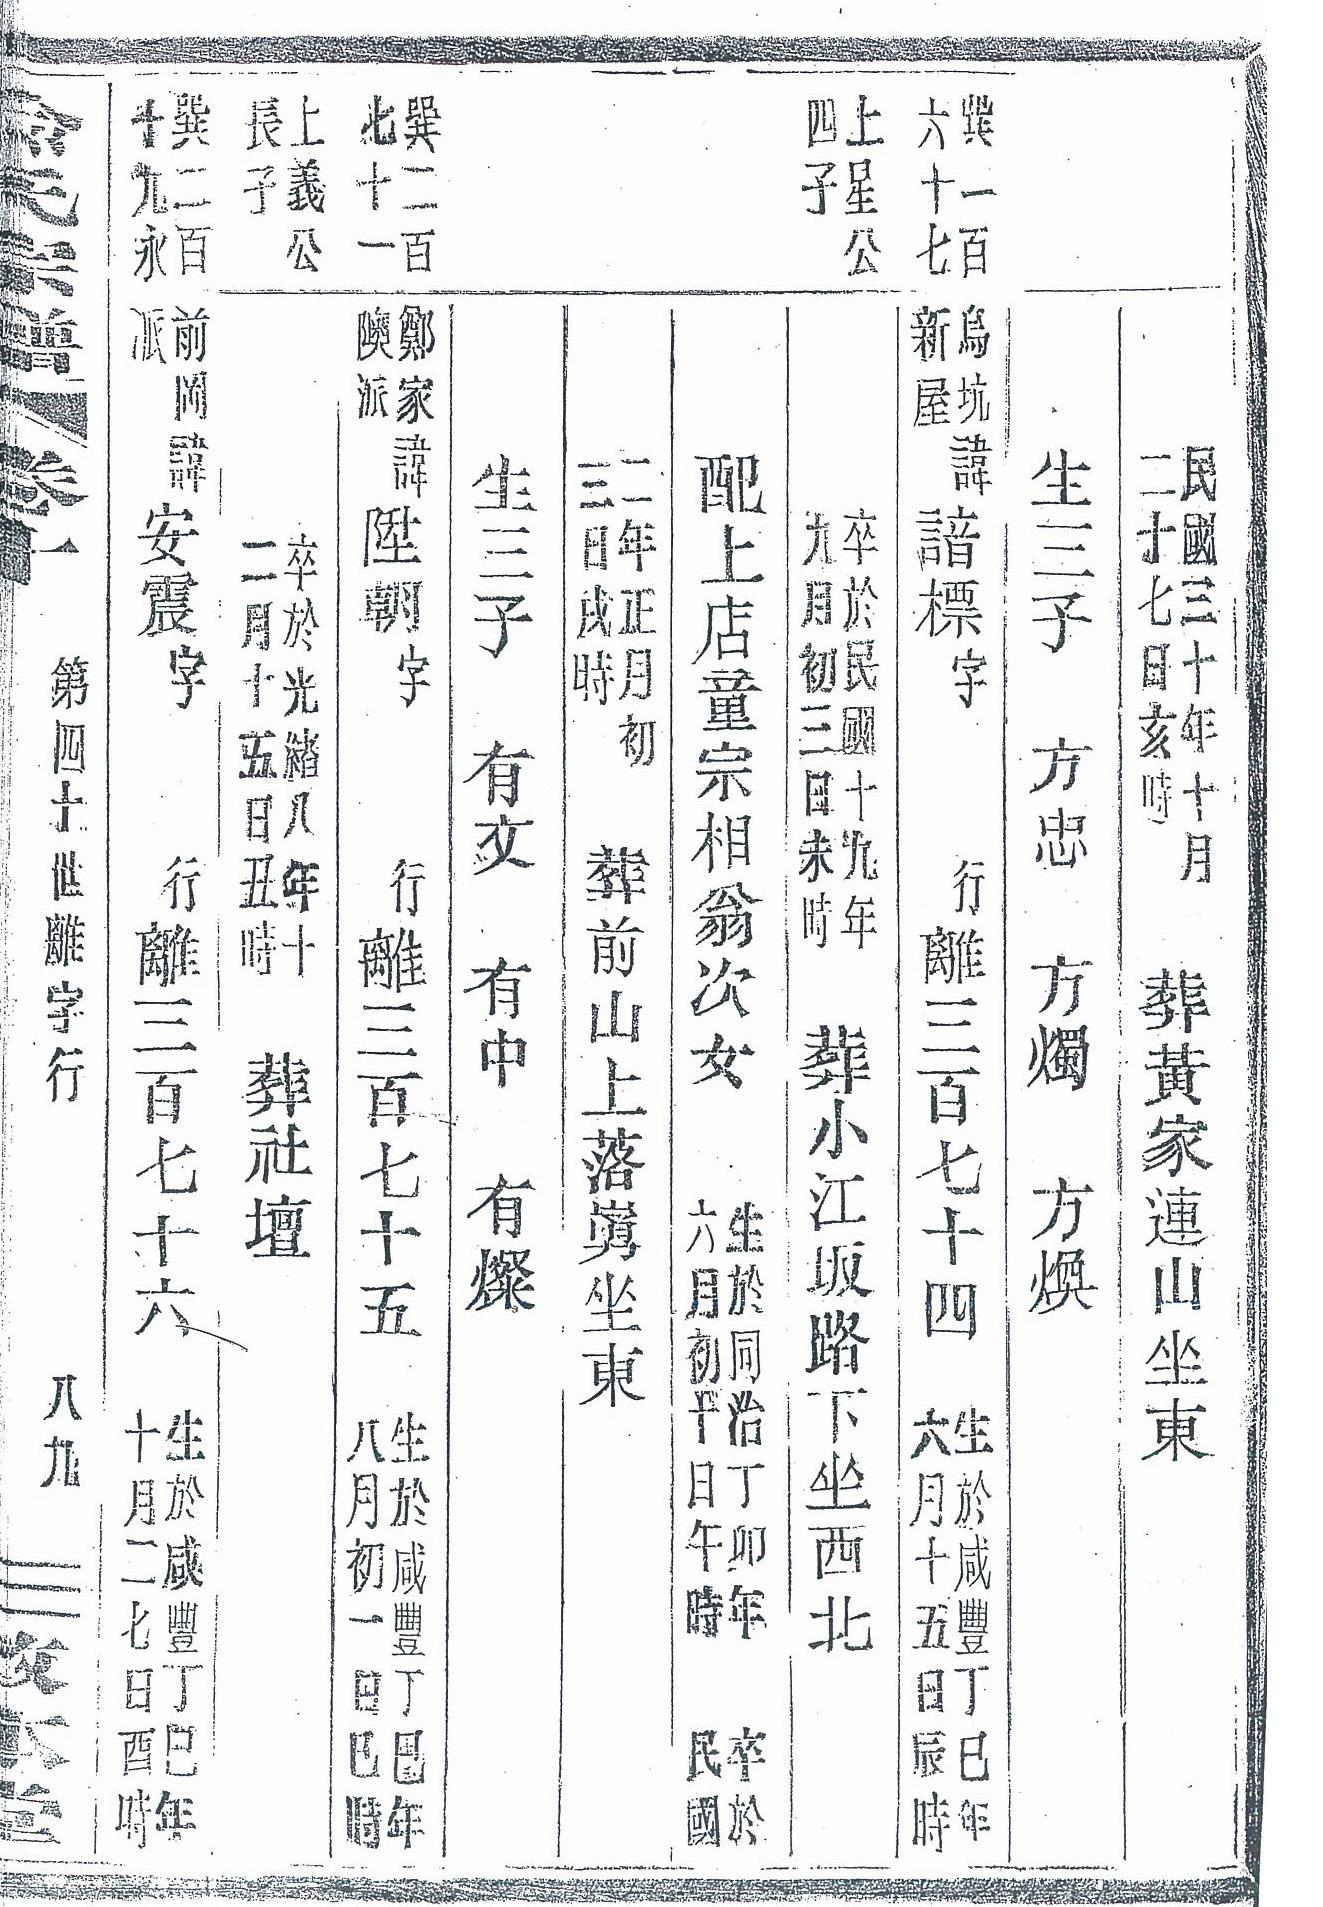 民國三十年十月
二十七日亥時
葬黃家連山坐東
生三子 方忠 方燭 方煥
巽一百
六十七
烏坑
新屋
諱諳標字 行離三百七十四
生於咸豐丁巳年
六月十五日辰時
上星公
四子
卒於民國十九年
九月初三日未時
葬小江坂路下坐西北
配上店童宗相翁次女
生於同治丁卯年
六月初十日午時
卒於
民國
二年正月初
三日戌時
葬前山上落嵵坐東
生三子 有文 有中 有燦
巽二百
七十一
鄭家
陝派
諱陞朝字 行離三百七十五
生於咸豐丁巳年
八月初一日巳時
上義公
長子
卒於光緒八年十
二月十五日丑時
葬社壇
巽二百
十九永
前岡
派
諱安震字 行離三百七十六
生於咸豐丁巳年
十月二七日酉時
氏宗譜 卷一 第四十世離字行 八九 堂